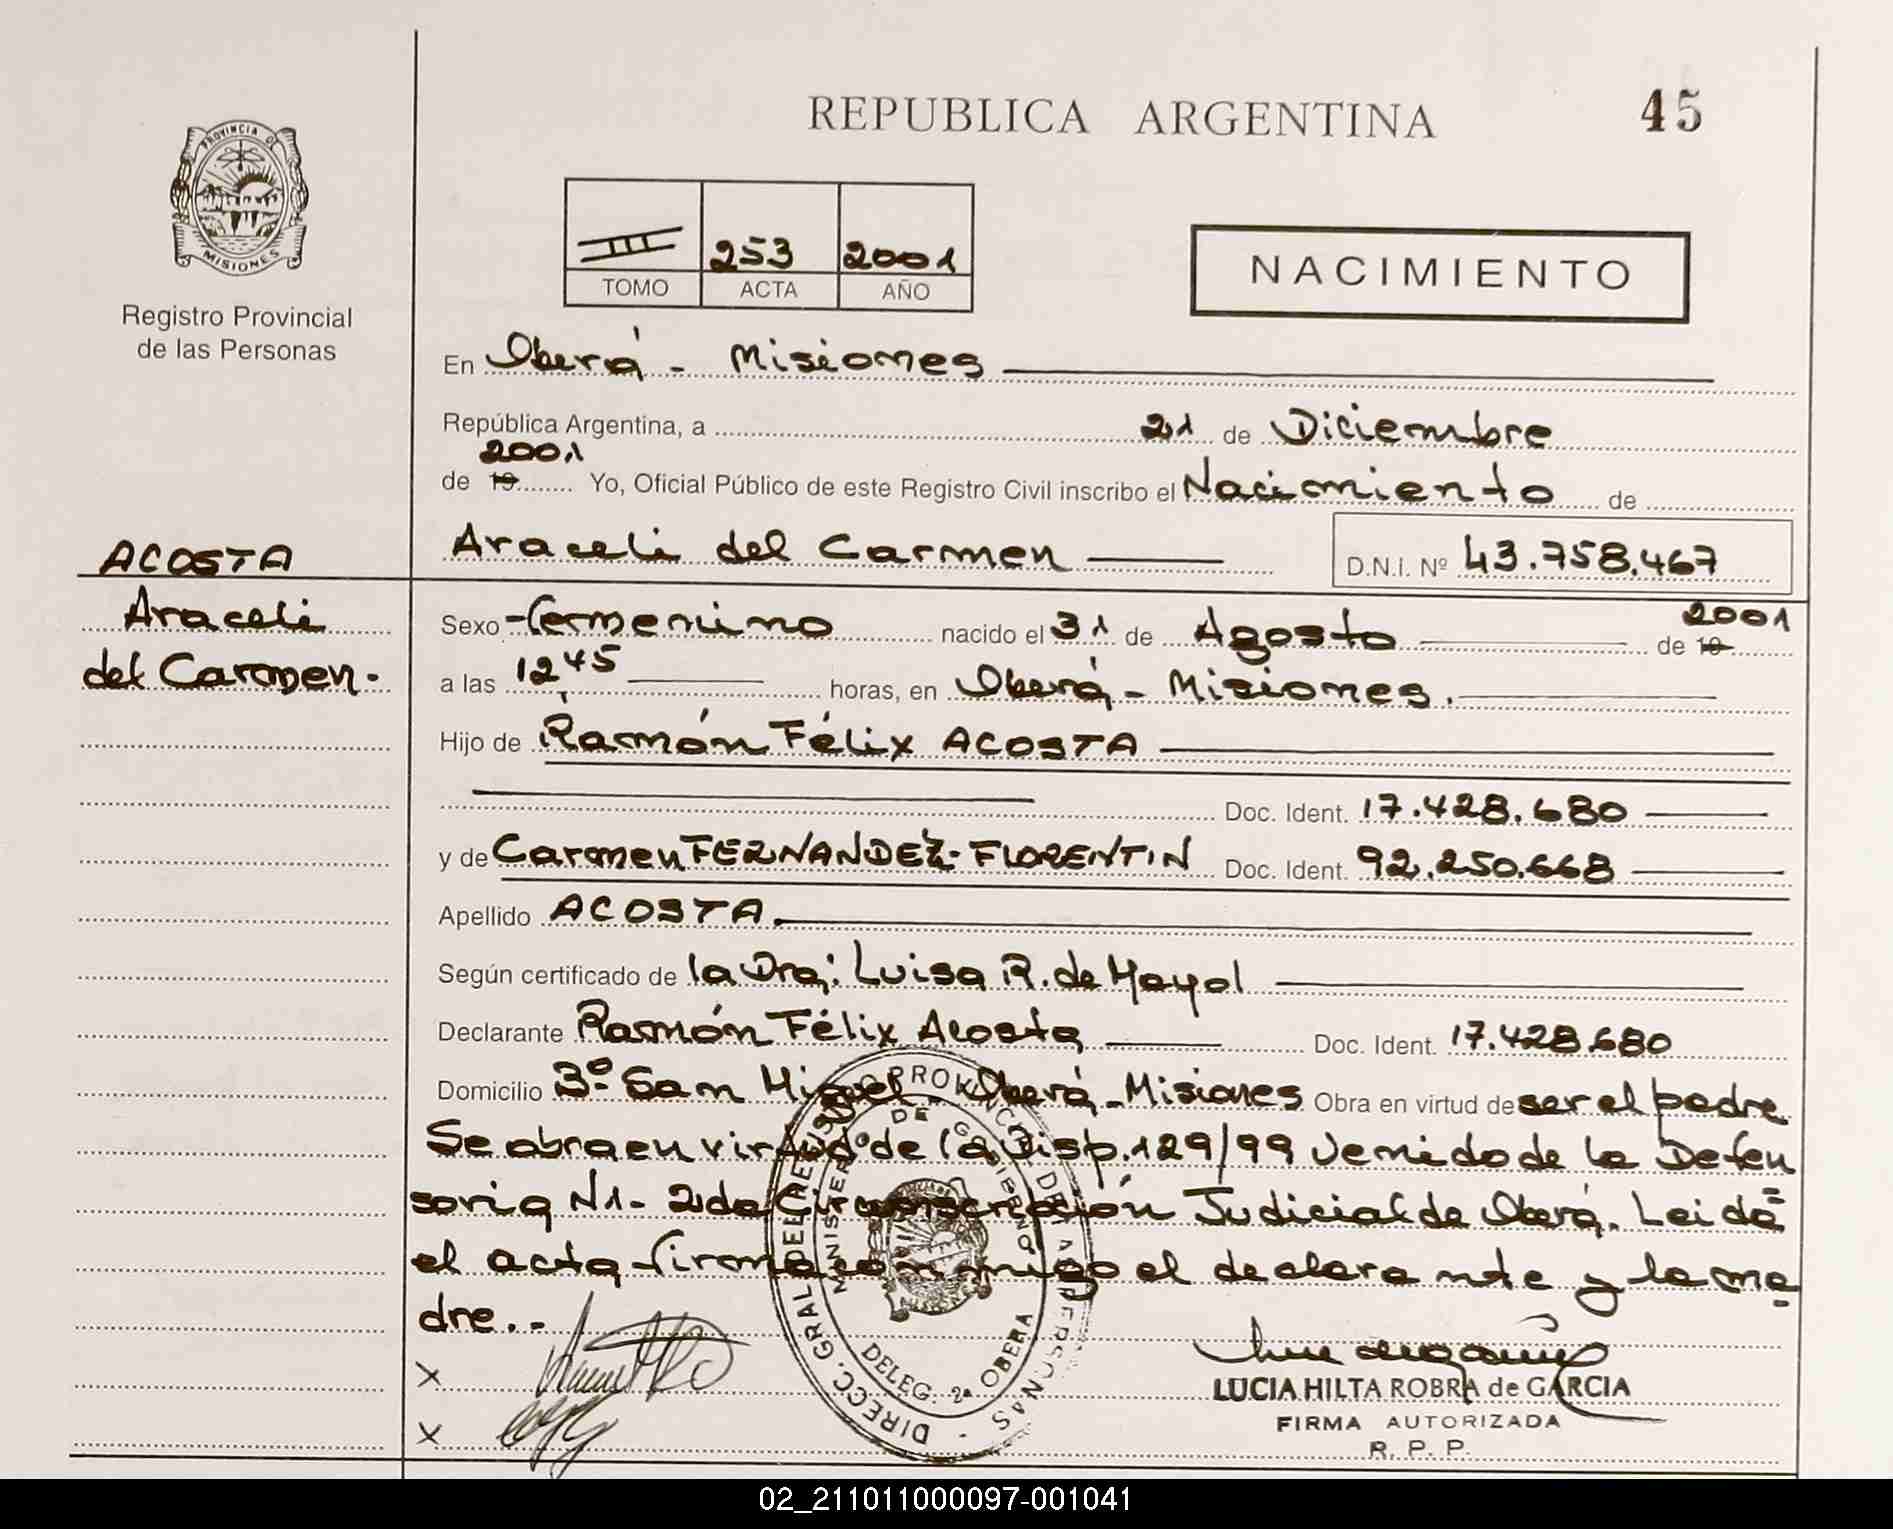 REPUBLICA ARGENTINA
45
PROVINCIA DE
MISIONES
Registro Provincial
de las Personas
III 253 2001
TOMO ACTA AÑO
NACIMIENTO
En Oberá - Misiones
República Argentina, a 21 de Diciembre
2001
de 19 Yo, Oficial Público de este Registro Civil inscribo el Nacimiento de
ACOSTA
Araceli del Carmen D.N.I. Nº 43.758.467
Araceli
del Carmen.
Sexo femenino nacido el 31 de Agosto de 19 2001
a las 12,45 horas, en Oberá - Misiones.
Hijo de Ramón Félix ACOSTA
Doc. Ident. 17.428.680
y de Carmen FERNANDEZ - FLORENTIN Doc. Ident. 92.250.668
Apellido ACOSTA
Según certificado de la Dra: Luisa R. de Mayol
Declarante Ramón Félix Acosta Doc. Ident. 17.428.680
Domicilio 3º San Miguel - Oberá - Misiones Obra en virtud de ser el padre
Se obra en virtud de la Disp. 129/99 venido de la Defen
soria N1 - 2da Circunscripción Judicial de Oberá. Leida
el acta firma con migo el declarante y la ma
dre. -
X
X
DIRECC. GRAL DEL REGISTRO PROVINCIAL DE LAS PERSONAS
MINISTERIO DE GOBIERNO
DELEG. 2ª OBERA
LUCIA HILTA ROBRA de GARCIA
FIRMA AUTORIZADA
R. P. P.
02_211011000097-001041